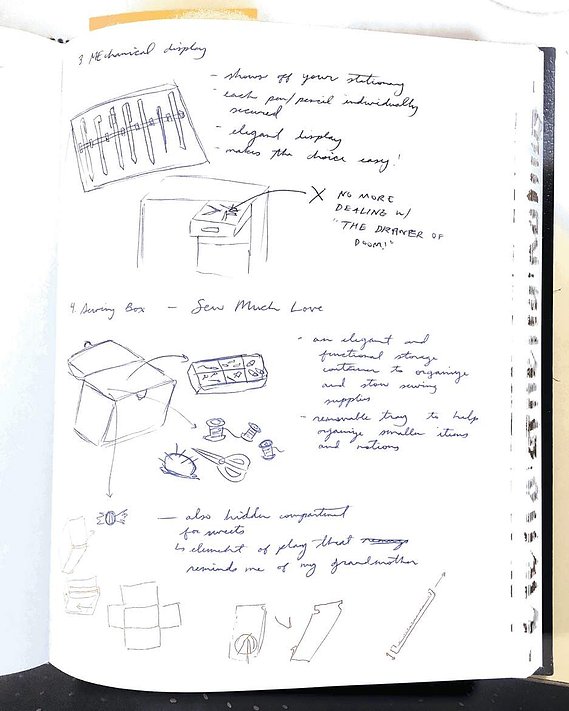 3 Mechanical display
- shows off your stationary
- each pen/pencil individually
secured
- elegant display
- makes the choice easy!
X NO MORE
DEALING W/
"THE DRAWER OF
DOOM!"
4. Sewing Box — Sew Much Love
- an elegant and
functional storage
container to organize
and stow sewing
supplies
- removable tray to help
organize smaller items
and notions
— also hidden compartment
for sweets
↳ element of play that
reminds me of my grandmother